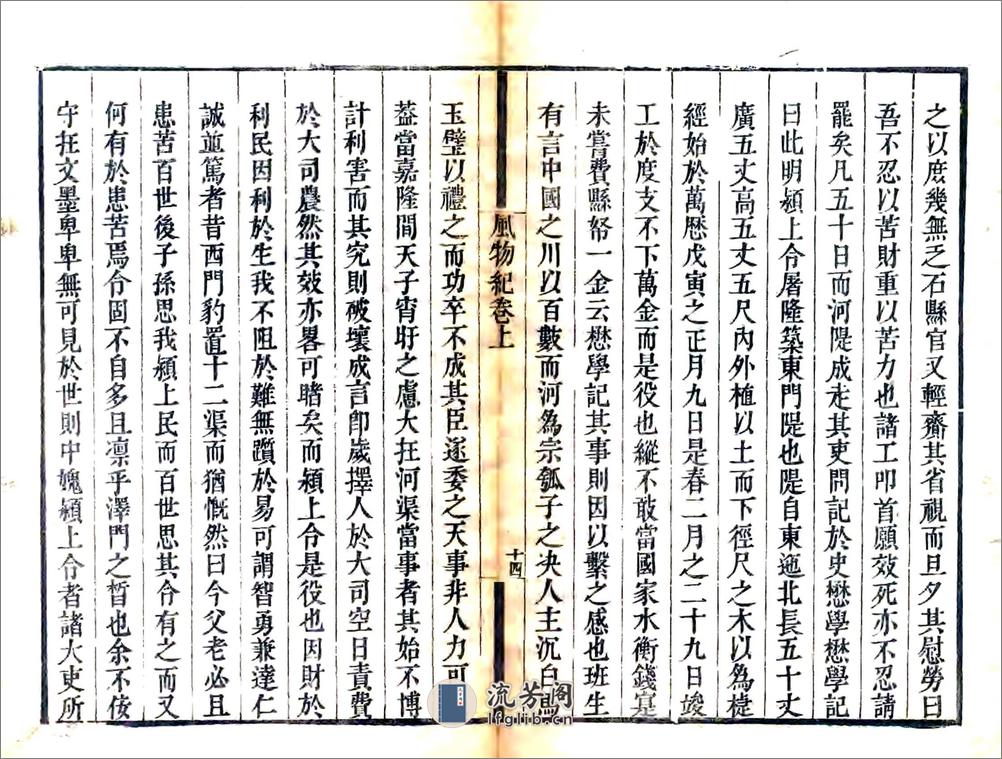 之以庶幾無乏石縣官又輕齎其省視而旦夕其慰勞曰
吾不忍以苦財重以苦力也諸工叩首願效死亦不忍請
罷矣凡五十日而河隄成走其吏問記於史懋學懋學記
曰此明潁上令屠隆築東門隄也隄自東迤北長五十丈
廣五丈高五丈五尺內外植以土而下徑尺之木以為楗
經始於萬歷戊寅之正月九日是春二月之二十九日竣
工於度支不下萬金而是役也縱不敢當國家水衡錢寔
未嘗費縣帑一金云懋學記其事則因以繫之感也班生
有言中國之川以百數而河為宗瓠子之决人主沉白馬
風物紀卷上
十四
玉璧以禮之而功卒不成其臣遂委之天事非人力可
葢當嘉隆間天子宵旰之慮大在河渠當事者其始不博
計利害而其究則破壞成言卽歲擇人於大司空日責費
於大司農然其效亦畧可睹矣而潁上令是役也因財於
利民因利於生我不阻於難無躓於易可謂智勇兼達仁
誠並篤者昔西門豹置十二渠而猶慨然曰今父老必且
患苦百世後子孫思我潁上民而百世思其令有之而又
何有於患苦焉令固不自多且凛乎澤門之晳也余不佞
守在文墨卑卑無可見於世則中媿潁上令者諸大吏所
流芳阁
lfglib.cn